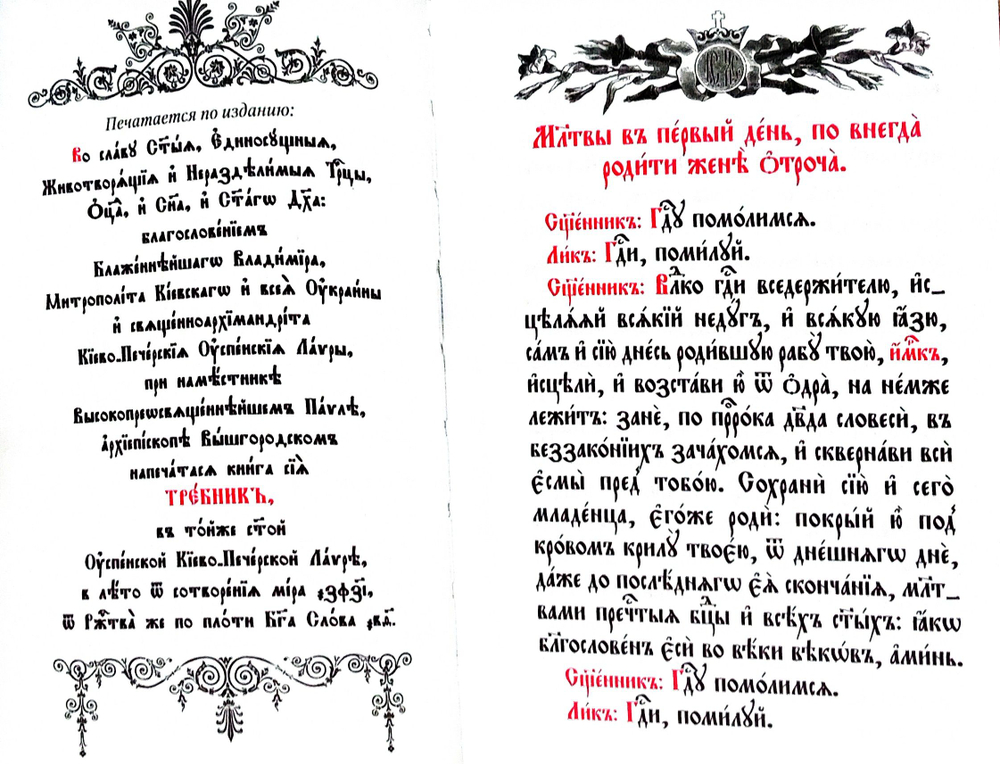 Печатается по изданию:
Во сла́вꙋ Ст҃ы́ѧ, Є҆диносꙋ́щныѧ,
Животворѧ́щїѧ и҆ Нераздѣ́лимыѧ Трⷪ҇цы,
Ѻ҆ц҃а̀, и҆ Сн҃а, и҆ Ст҃а́гѡ Дх҃а:
благослове́нїемъ
Блаже́ннѣйшагѡ Влади́мїра,
Митрополі́та Кі́евскагѡ и҆ всеѧ̀ Оу҆краи́ны
и҆ свѧще́нноархїмандрі́та
Кі́ево-Пече́рскїѧ Оу҆спе́нскїѧ Ла́ѵры,
при намѣ́стникѣ
Высокопреѡсвѧще́ннѣйшемъ Па́ѵлѣ,
а҆рхїепі́скопѣ Вы́шгородскомъ
напеча́тасѧ кни́га сїѧ̀
ТРЕ́БНИКЪ,
въ то́йже ст҃о́й
Оу҆спе́нской Кі́ево-Пече́рской Ла́ѵрѣ,
в лѣ́то ѿ сотворе́нїѧ мі́ра ҂зфз҃і,
ѿ Рж҃тва̀ же по пло́ти Бг҃а Сло́ва ҂вд҃.
Мл҃твы въ пе́рвый де́нь, по внегда̀
роди́ти женѣ̀ ѻ҆троча̀.
Сщ҃е́нникъ: Гдⷭ҇ꙋ помо́лимсѧ.
Ли́къ: Гдⷭ҇и, поми́лꙋй.
Сщ҃е́нникъ: Влⷣко гдⷭ҇и вседержи́телю, и҆с_
цѣлѧ́ѧй всѧ́кїй недꙋ́гъ, и҆ всѧ́кꙋю ꙗ҆́зю,
са́мъ и҆ сїю̀ дне́сь роди́вшꙋю рабꙋ̀ твою̀, и҆́м҃къ,
и҆сцѣлѝ, и҆ возста́ви ю҆̀ ѿ ѻ҆дра̀, на не́мже
лежи́тъ: занѐ, по прⷪ҇ро́ка дв҃да словесѝ, въ
беззако́нїихъ зача́хомсѧ, и҆ скверна́ви всѝ
є҆смы̀ пред̾ тобо́ю. Сохранѝ сїю̀ и҆ сего̀
младе́нца, є҆го́же родѝ: покры́й ю҆̀ под̾
кро́вомъ крилꙋ̀ твоє́ю, ѿ дне́шнѧгѡ днѐ,
да́же до послѣ́днѧгѡ є҆ѧ̀ сконча́нїѧ, мл҃т_
вами преч҃тыѧ бцⷣы и҆ всѣ́хъ ст҃ы́хъ: ꙗ҆́кѡ
бл҃гослове́нъ є҆сѝ во вѣ́ки вѣкѡ́въ, а҆ми́нь.
Сщ҃е́нникъ: Гдⷭ҇ꙋ помо́лимсѧ.
Ли́къ: Гдⷭ҇и, поми́лꙋй.